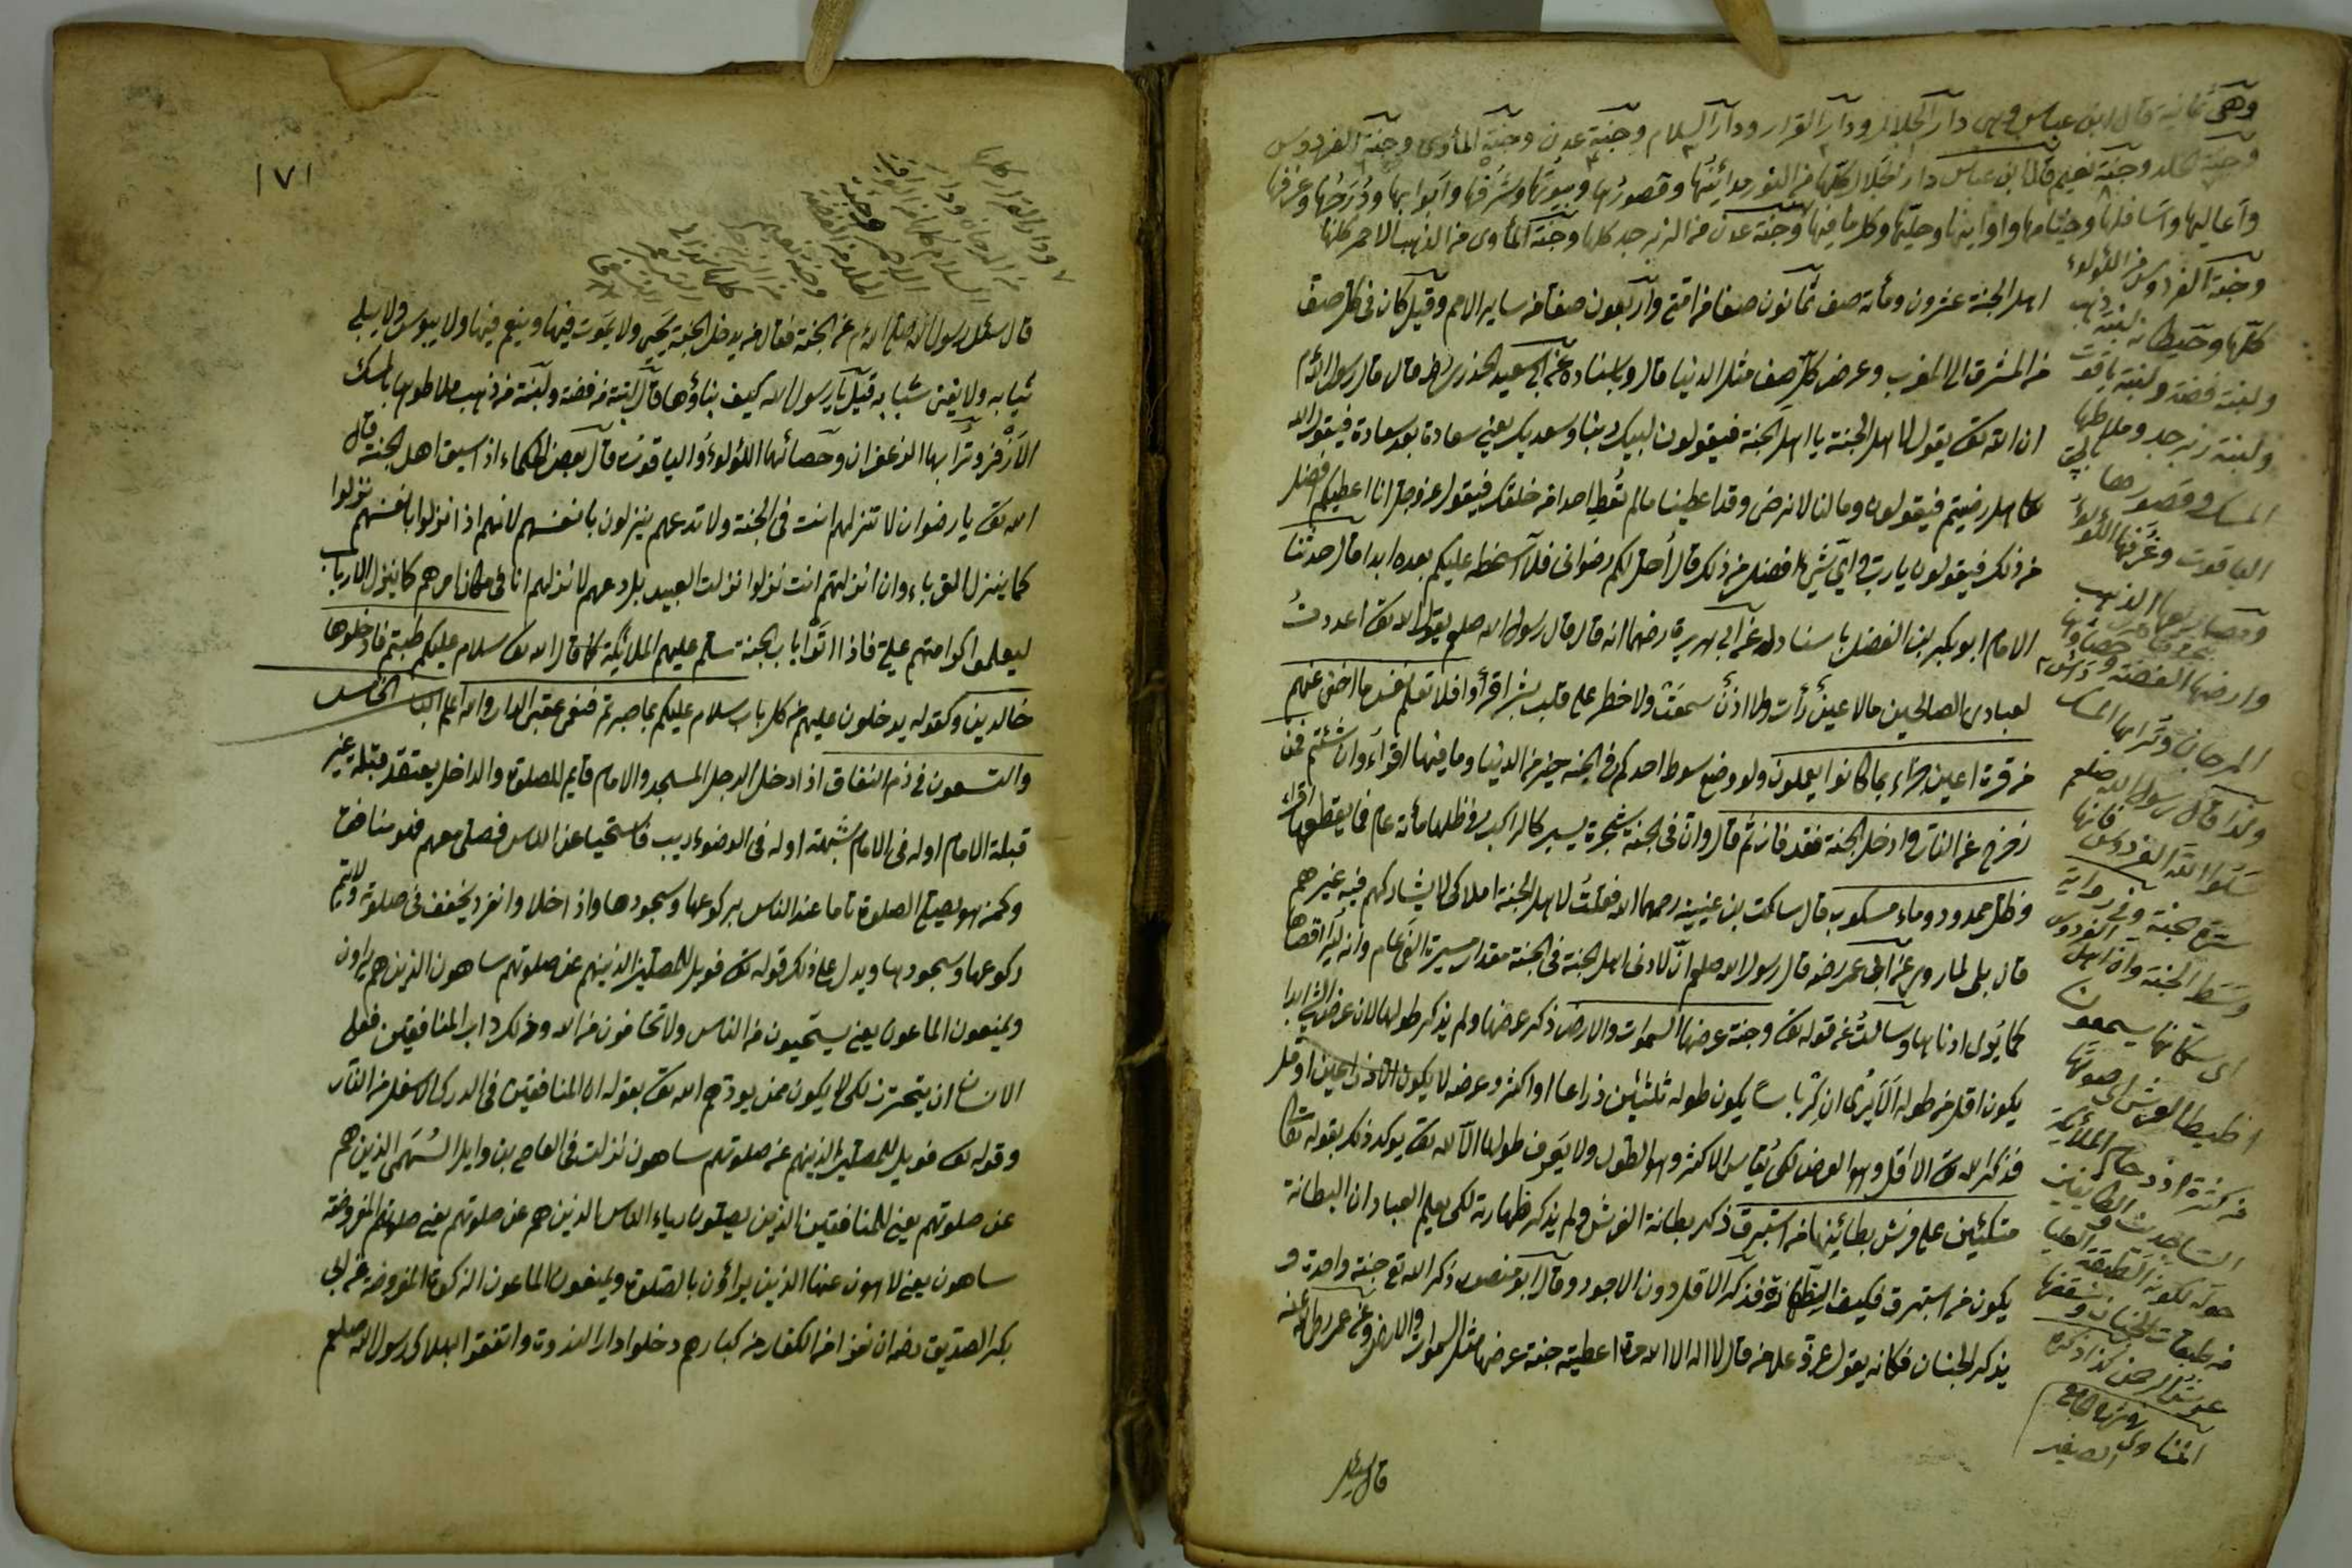 وهي ثمانية قال ابن عباس وهي دار الجلال ودار القرار ودار السلام وجنة عدن وجنة المأوى وجنة الفردوس
وجنة الخلد وجنة نعيم قال ابن عباس دار الجلال كلها من النور مدائنها وقصورها وبيوتها وشرفها وابوابها ودرجها وغرفها
واعاليها واسافلها وخيامها واوانيها وحليها وكل ما فيها وجنة عدن من الزبرجد كلها وجنة المأوى من الذهب الاحمر كلها
وجنة الفردوس من اللؤلؤ
كلها وحيطانه لبنة ذهب
ولبنة فضة ولبنة ياقوت
ولبنة زبرجد وملاطها
المسك وقصورها
الياقوت وغرفها اللؤلؤ
ومصاريعها الذهب
وارضها الفضة وحصباؤها
المرجان وترابها المسك
ولذا قال رسول الله صلعم
سلوا الله الفردوس فانها
سرة الجنة وفي رواية
وسط الجنة وان اهل الفردوس
اى سكانها يسمعون
اطيط العرش اى صوتها
من كثرة ازدحام الملائكة
الساجدين والطائفين
حوله لكونه الطبقة العليا
من طبقات الجنان وسقفها
عرش الرحمن كذا ذكره
المناوى فى شرح الجامع
الصغير
اهل الجنة عشرون ومائة صف ثمانون صفا من امتى واربعون صفا من ساير الامم وقيل كان فى كل صف
من المشرق الى المغرب وعرض كل صف مثل الدنيا قال وباسناده عن ابى سعيد الخدرى رضه قال قال رسول الله
ان الله تعـ يقول لاهل الجنة يا اهل الجنة فيقولون لبيك ربنا وسعديك يعنى سعادة بعد سعادة فيقول الله
هل رضيتم فيقولون وما لنا لا نرضى وقد اعطيتنا ما لم تعط احدا من خلقك فيقول عز وجل انا اعطيكم افضل
من ذلك فيقولون يا رب واى شئ افضل من ذلك قال أحل لكم رضوانى فلا اسخط عليكم بعده ابدا قال حدثنا
الامام ابو بكر بن الفضل باسناد له عن ابى هريرة رضهما انه قال قال رسول الله صلعم يقول الله تعـ اعددت
لعبادى الصالحين ما لا عين رأت ولا اذن سمعت ولا خطر على قلب بشر اقرأوا فلا تعلم نفس ما اخفى لهم
من قرة اعين جزاء بما كانوا يعملون ولو وضع سوط احدكم فى الجنة خير من الدنيا وما فيها اقرأوا ان شئتم فمن
زحزح عن النار وادخل الجنة فقد فاز ثم قال وان فى الجنة شجرة يسير كالراكب فى ظلها مائة عام فما يقطعها اقرأوا
وظل ممدود وماء مسكوب قال سالت بن عيينة رحمه الله فقلت لاهل الجنة املاك لا يشاركهم فيه غيرهم
قال بلى لما روى عن ابن عمر رضه قال رسول الله صلعم ان لادنى اهل الجنة فى الجنة مقدار مسيرة الفى عام وانه ليرى اقصاها
كما يرى ادناها وسالت عن قوله تعـ وجنة عرضها السموات والارض ذكر عرضها ولم يذكر طولها لان عرض الشئ ابدا
يكون اقل من طوله الا يرى ان كرباسا يكون طوله ثلثين ذراعا او اكثر وعرضه لا يكون الا ذراعين او اقل
فذكر الله تعـ الاقل وهو العرض لكى يقاس الاكثر وهو الطول ولا يعرف طولها الا الله تعـ يوكد ذلك بقوله تعـ
متكئين على فرش بطائنها من استبرق ذكر بطانة الفرش ولم يذكر ظهارته لكى يعلم العباد ان البطانة
يكون من استبرق فكيف الظهارة فذكر الاقل دون الاجود وقال ابو منصور ذكر الله تع جنة واحدة و
يذكر الجنان فكانه يقول عز وعلا من قال لا اله الا الله مرة اعطيته جنة عرضها مثل السموات والارض وعن عمر رضى الله عنه
قال سئل
١٧١
ودار القرار كلها
من المرجان ودار
السلام كلها من الياقوت
الاحمر وجنة
الخلد من الفضة
وجنة نعيم
قال سئل رسول الله صلى الله م عن الجنة فقال من يدخل الجنة يحيى ولا يموت فيها وينعم فيها ولا يبوس ولا يبلى
ثيابه ولا يفنى شبابه قيل يا رسول الله كيف بناؤها قال لبنة من فضة ولبنة من ذهب ملاطها بالمسك
الاذفر وترابها الزعفران وحصائها اللؤلؤ والياقوت قال بعض الحكماء اذا سيق اهل الجنة قال
الله تعـ يا رضوان لا تنزلهم انت فى الجنة ولا تدعهم ينزلون بانفسهم لانهم اذا نزلوا بانفسهم نزلوا
كما ينزل الغرباء وان انزلتهم انت نزلوا نزلت العبيد بل دعهم لانزلهم انا فى مكانا مرهم كما ينزل الارباب
ليعلموا كرامتهم على فاذا اتوا باب الجنة سلم عليهم الملائكة كما قال الله تعـ سلام عليكم طبتم فادخلوها
خالدين وكقوله يدخلون عليهم من كل باب سلام عليكم بما صبرتم فنعم عقبى الدار والله اعلم الباب الخامس
والتسعون فى ذم النفاق اذا دخل الرجل المسجد والامام قايم للصلوة والداخل يعتقد قبلة غير
قبلة الامام او له فى الامام شبهة او له فى الوضوء ريب فاستحيا عن الناس فصلى معهم فهو منافق
وكمن هو يصلى الصلوة تاما عند الناس بركوعها وسجودها واذا خلا وانفرد يخفف فى صلوته ولا يتم
ركوعها وسجودها ويدل على ذلك قوله تعـ فويل للمصلين الذينهم عن صلوتهم ساهون الذين هم يراون
ويمنعون الماعون يعنى يستحيون من الناس ولا تخافون من الله وذلك داب المنافقين فعلى
الانسان ان يتحرز لكى لا يكون ممن يوذيهم الله تعـ بقوله ان المنافقين فى الدرك الاسفل من النار
وقوله تعـ فويل للمصلين الذينهم عن صلوتهم ساهون نزلت فى العاص بن وايل السهمى الذين هم
عن صلوتهم يعنى للمنافقين الذين يصلون رياء الناس الذين هم عن صلوتهم يعنى صلوتهم المفروضة
ساهون يعنى لاهون عنها الذين يراؤن بالصلوة ويمنعون الماعون الزكوة المفروضة عن ابى
بكر الصديق رضه ان نفرا من الكفار من كبارهم دخلوا دار الندوة واتفقوا لهلاك رسول الله صلعم